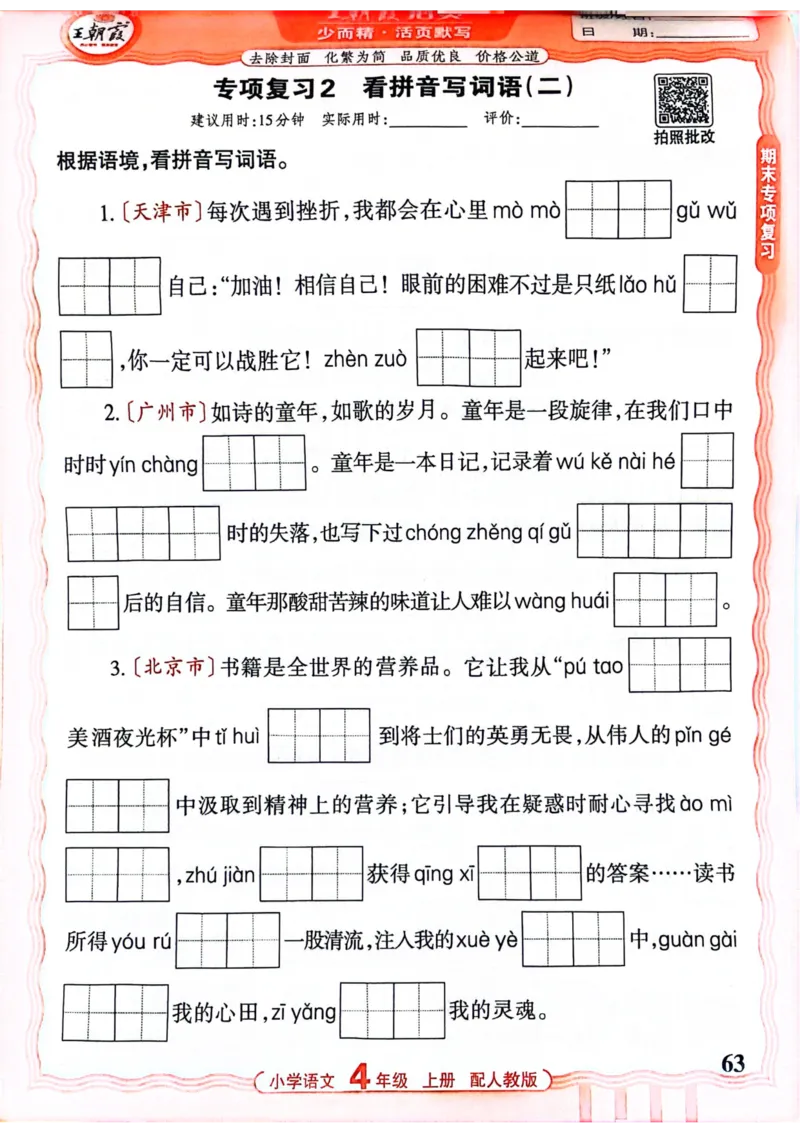 王朝霞
少而精·活页默写
日 期:
去除封面 化繁为简 品质优良 价格公道
专项复习2 看拼音写词语(二)
建议用时:15分钟 实际用时: 评价:
拍照批改
期末专项复习
根据语境,看拼音写词语。
1.〔天津市〕每次遇到挫折,我都会在心里mò mò gǔ wǔ
自己:“加油!相信自己!眼前的困难不过是只纸lǎo hǔ
,你一定可以战胜它!zhèn zuò 起来吧!”
2.〔广州市〕如诗的童年,如歌的岁月。童年是一段旋律,在我们口中
时时yín chàng 。童年是一本日记,记录着wú kě nài hé
时的失落,也写下过chóng zhěng qí gǔ
后的自信。童年那酸甜苦辣的味道让人难以wàng huái 。
3.〔北京市〕书籍是全世界的营养品。它让我从“pú tao
美酒夜光杯”中tǐ huì 到将士们的英勇无畏,从伟人的pǐn gé
中汲取到精神上的营养;它引导我在疑惑时耐心寻找ào mì
,zhú jiàn 获得qīng xī 的答案……读书
所得yóu rú 一股清流,注入我的xuè yè 中,guàn gài
我的心田,zī yǎng 我的灵魂。
63
小学语文 4年级 上册 配人教版